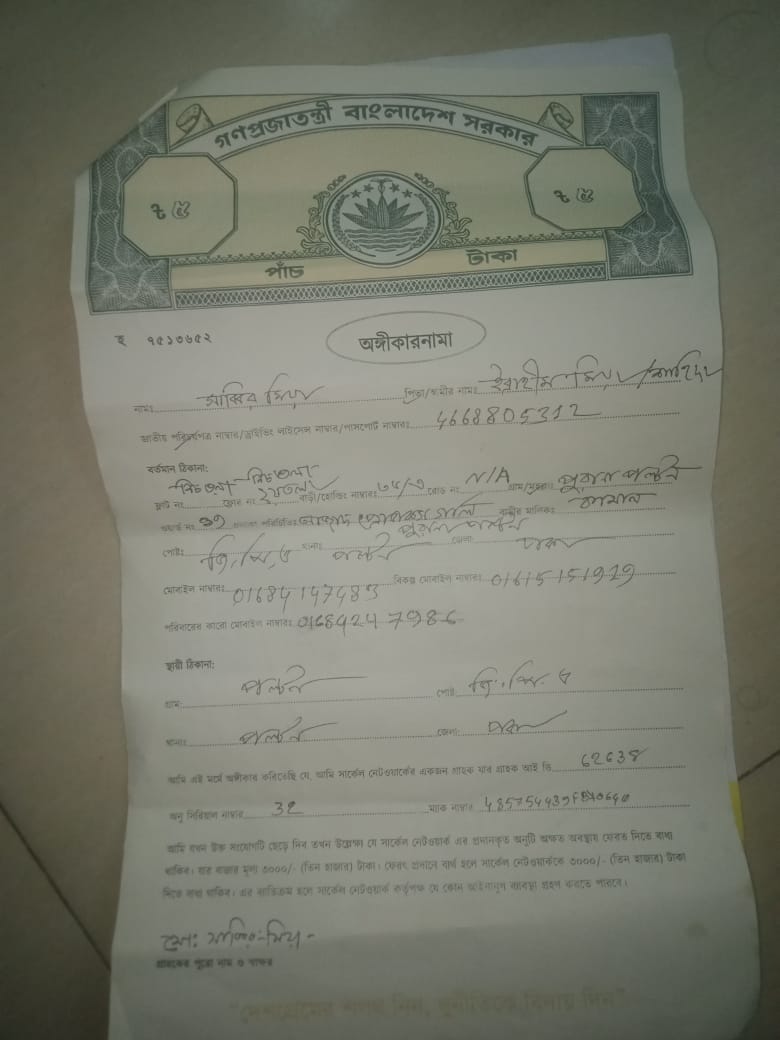 গণপ্রজাতন্ত্রী বাংলাদেশ সরকার
৳ ৫ ৳ ৫
পাঁচ টাকা
হ ৭৫১৩৬৫২
অঙ্গীকারনামা
নামঃ পিতা/স্বামীর নামঃ
জাতীয় পরিচয়পত্র নাম্বার/ড্রাইভিং লাইসেন্স নাম্বার/পাসপোর্ট নাম্বারঃ 4668805312
বর্তমান ঠিকানা:
ফ্ল্যাট নং ফ্লোর নং বাড়ী/হোল্ডিং নাম্বারঃ রোড নং N/A গ্রাম/মহল্লাঃ পুরানা পল্টন
ওয়ার্ড নং বাড়ীর মালিকঃ
পোষ্টঃ জি.পি.ও থানাঃ পল্টন জেলাঃ ঢাকা
মোবাইল নাম্বারঃ 01684147483 বিকল্প মোবাইল নাম্বারঃ 01615151929
পরিবারের কারো মোবাইল নাম্বারঃ 01684247986
স্থায়ী ঠিকানা:
গ্রামঃ পল্টন পোষ্টঃ জি.পি.ও
থানাঃ পল্টন জেলাঃ ঢাকা
আমি এই মর্মে অঙ্গীকার করিতেছি যে, আমি সার্কেল নেটওয়ার্কের একজন গ্রাহক যার গ্রাহক আই ডি 62638
অনু সিরিয়াল নাম্বার 32 ম্যাক নাম্বার
আমি যখন উক্ত সংযোগটি ছেড়ে দিব তখন উল্লেখ্য যে সার্কেল নেটওয়ার্ক এর প্রদানকৃত অনুটি অক্ষত অবস্থায় ফেরত দিতে বাধ্য
থাকিব। যার বাজার মূল্য ৩০০০/- (তিন হাজার) টাকা। ফেরৎ প্রদানে ব্যর্থ হলে সার্কেল নেটওয়ার্ককে ৩০০০/- (তিন হাজার) টাকা
দিতে বাধ্য থাকিব। এর ব্যতিক্রম হলে সার্কেল নেটওয়ার্ক কর্তৃপক্ষ যে কোন আইনানুগ ব্যবস্থা গ্রহণ করতে পারবে।
গ্রাহকের পুরো নাম ও স্বাক্ষর
"দেশপ্রেমের শপথ নিন, দুর্নীতিকে বিদায় দিন"